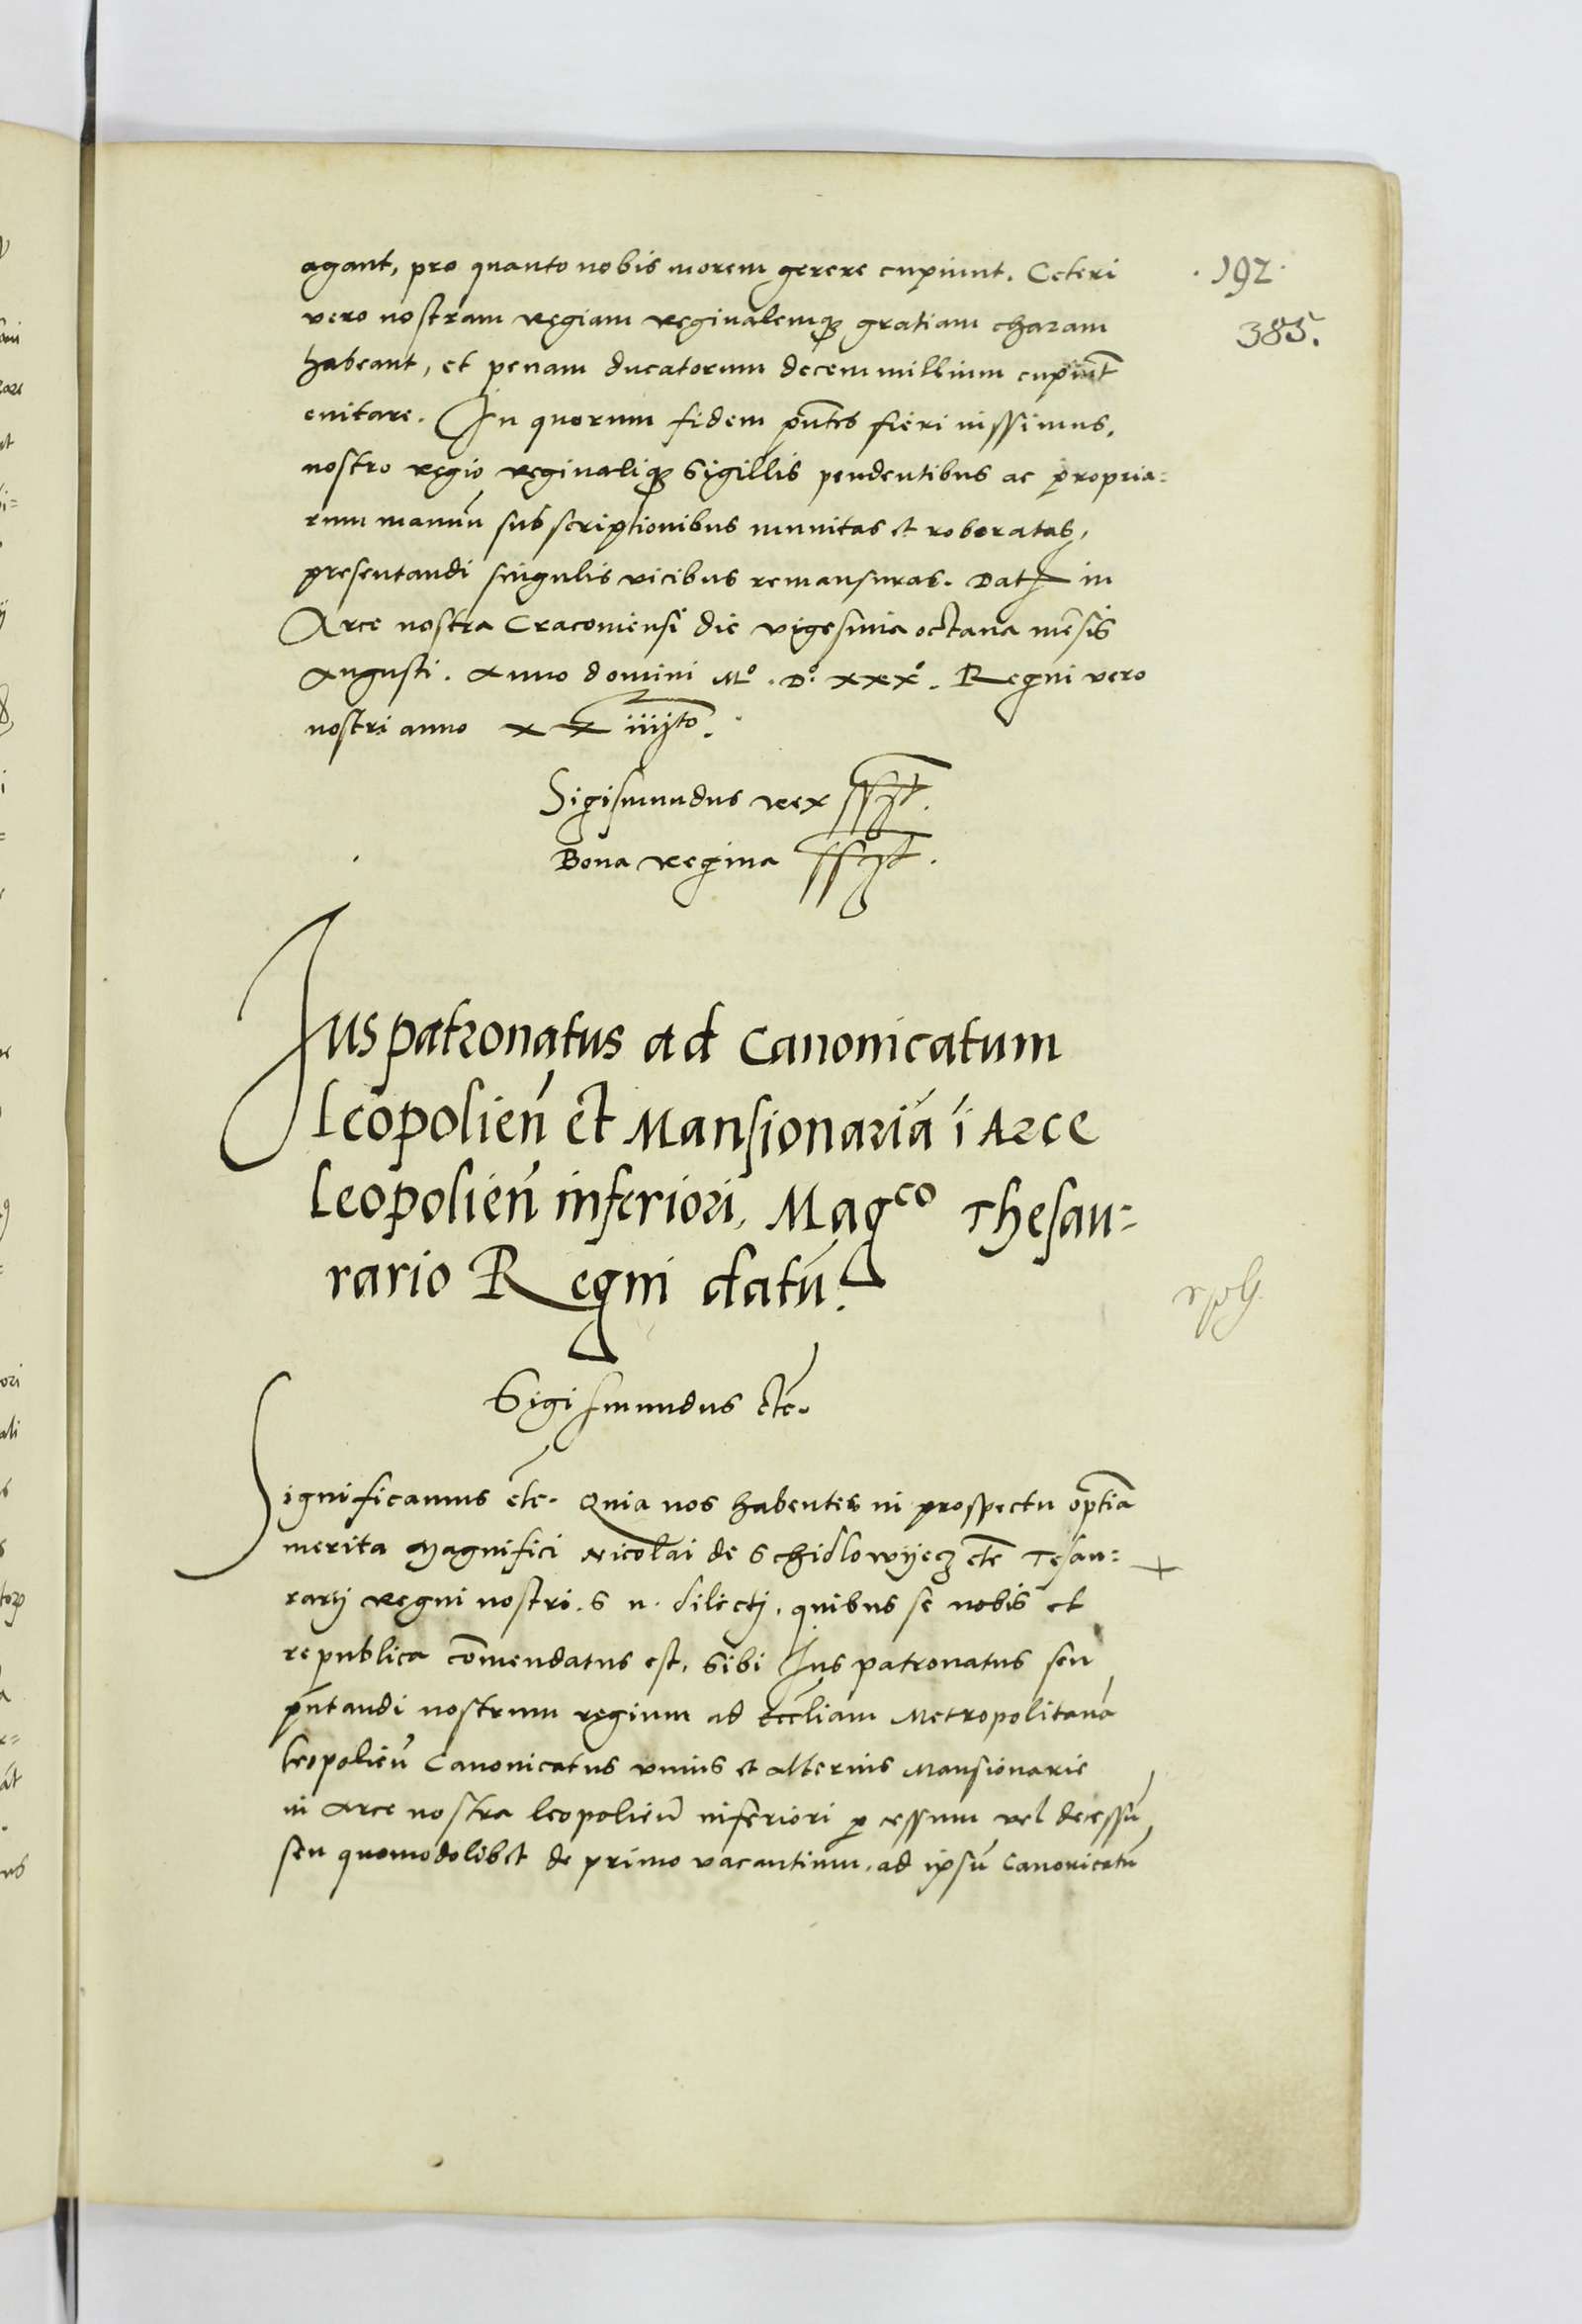 agant, pro quanto nobis morem gerere cupiunt. Ceteri
.192.
vero nostram regiam reginalemq gratiam charam
385.
habeant, et penam ducatorum decem millium cupiunt
evitare. In quorum fidem pn̄tes fieri iussimus,
nostro regio reginaliq Sigillis pendentibus ac propria=
rum manuū subscriptionibus munitas et roboratas,
presentandi singulis vicibus remansuras. Dat in
Arce nostra Cracoviensi die vigesima octava mēsis
Augusti. Anno domini Mº. Dº. xxxº. Regni vero
nostri anno xxiiijto.
Sigismundus rex sszt.
Bona regina sszt.
Jus patronatus ad Canonicatum
Leopolien̄ et Mansionariā ī Arce
Leopolien̄ inferiori, Magco Thesau=
rario Regni datū.
Sigismundus etc.
Significamus etc. Quia nos habentes in prospectu optīa
merita Magnifici Nicolai de Schidlowyecz etc Tesau= +
rarij regni nostri. S n. dilectj. quibus se nobis et
republica cōmendatus est, Sibi Jus patronatus seu
pn̄tandi nostrum regium ad eccliam Metropolitanā
leopolien̄ Canonicatus unius et alterius Mansionarie
in Arce nostra leopolien̄ inferiori p cessum vel decessū
seu quomodolibet de primo vacantium. ad ipsū Canonicatū